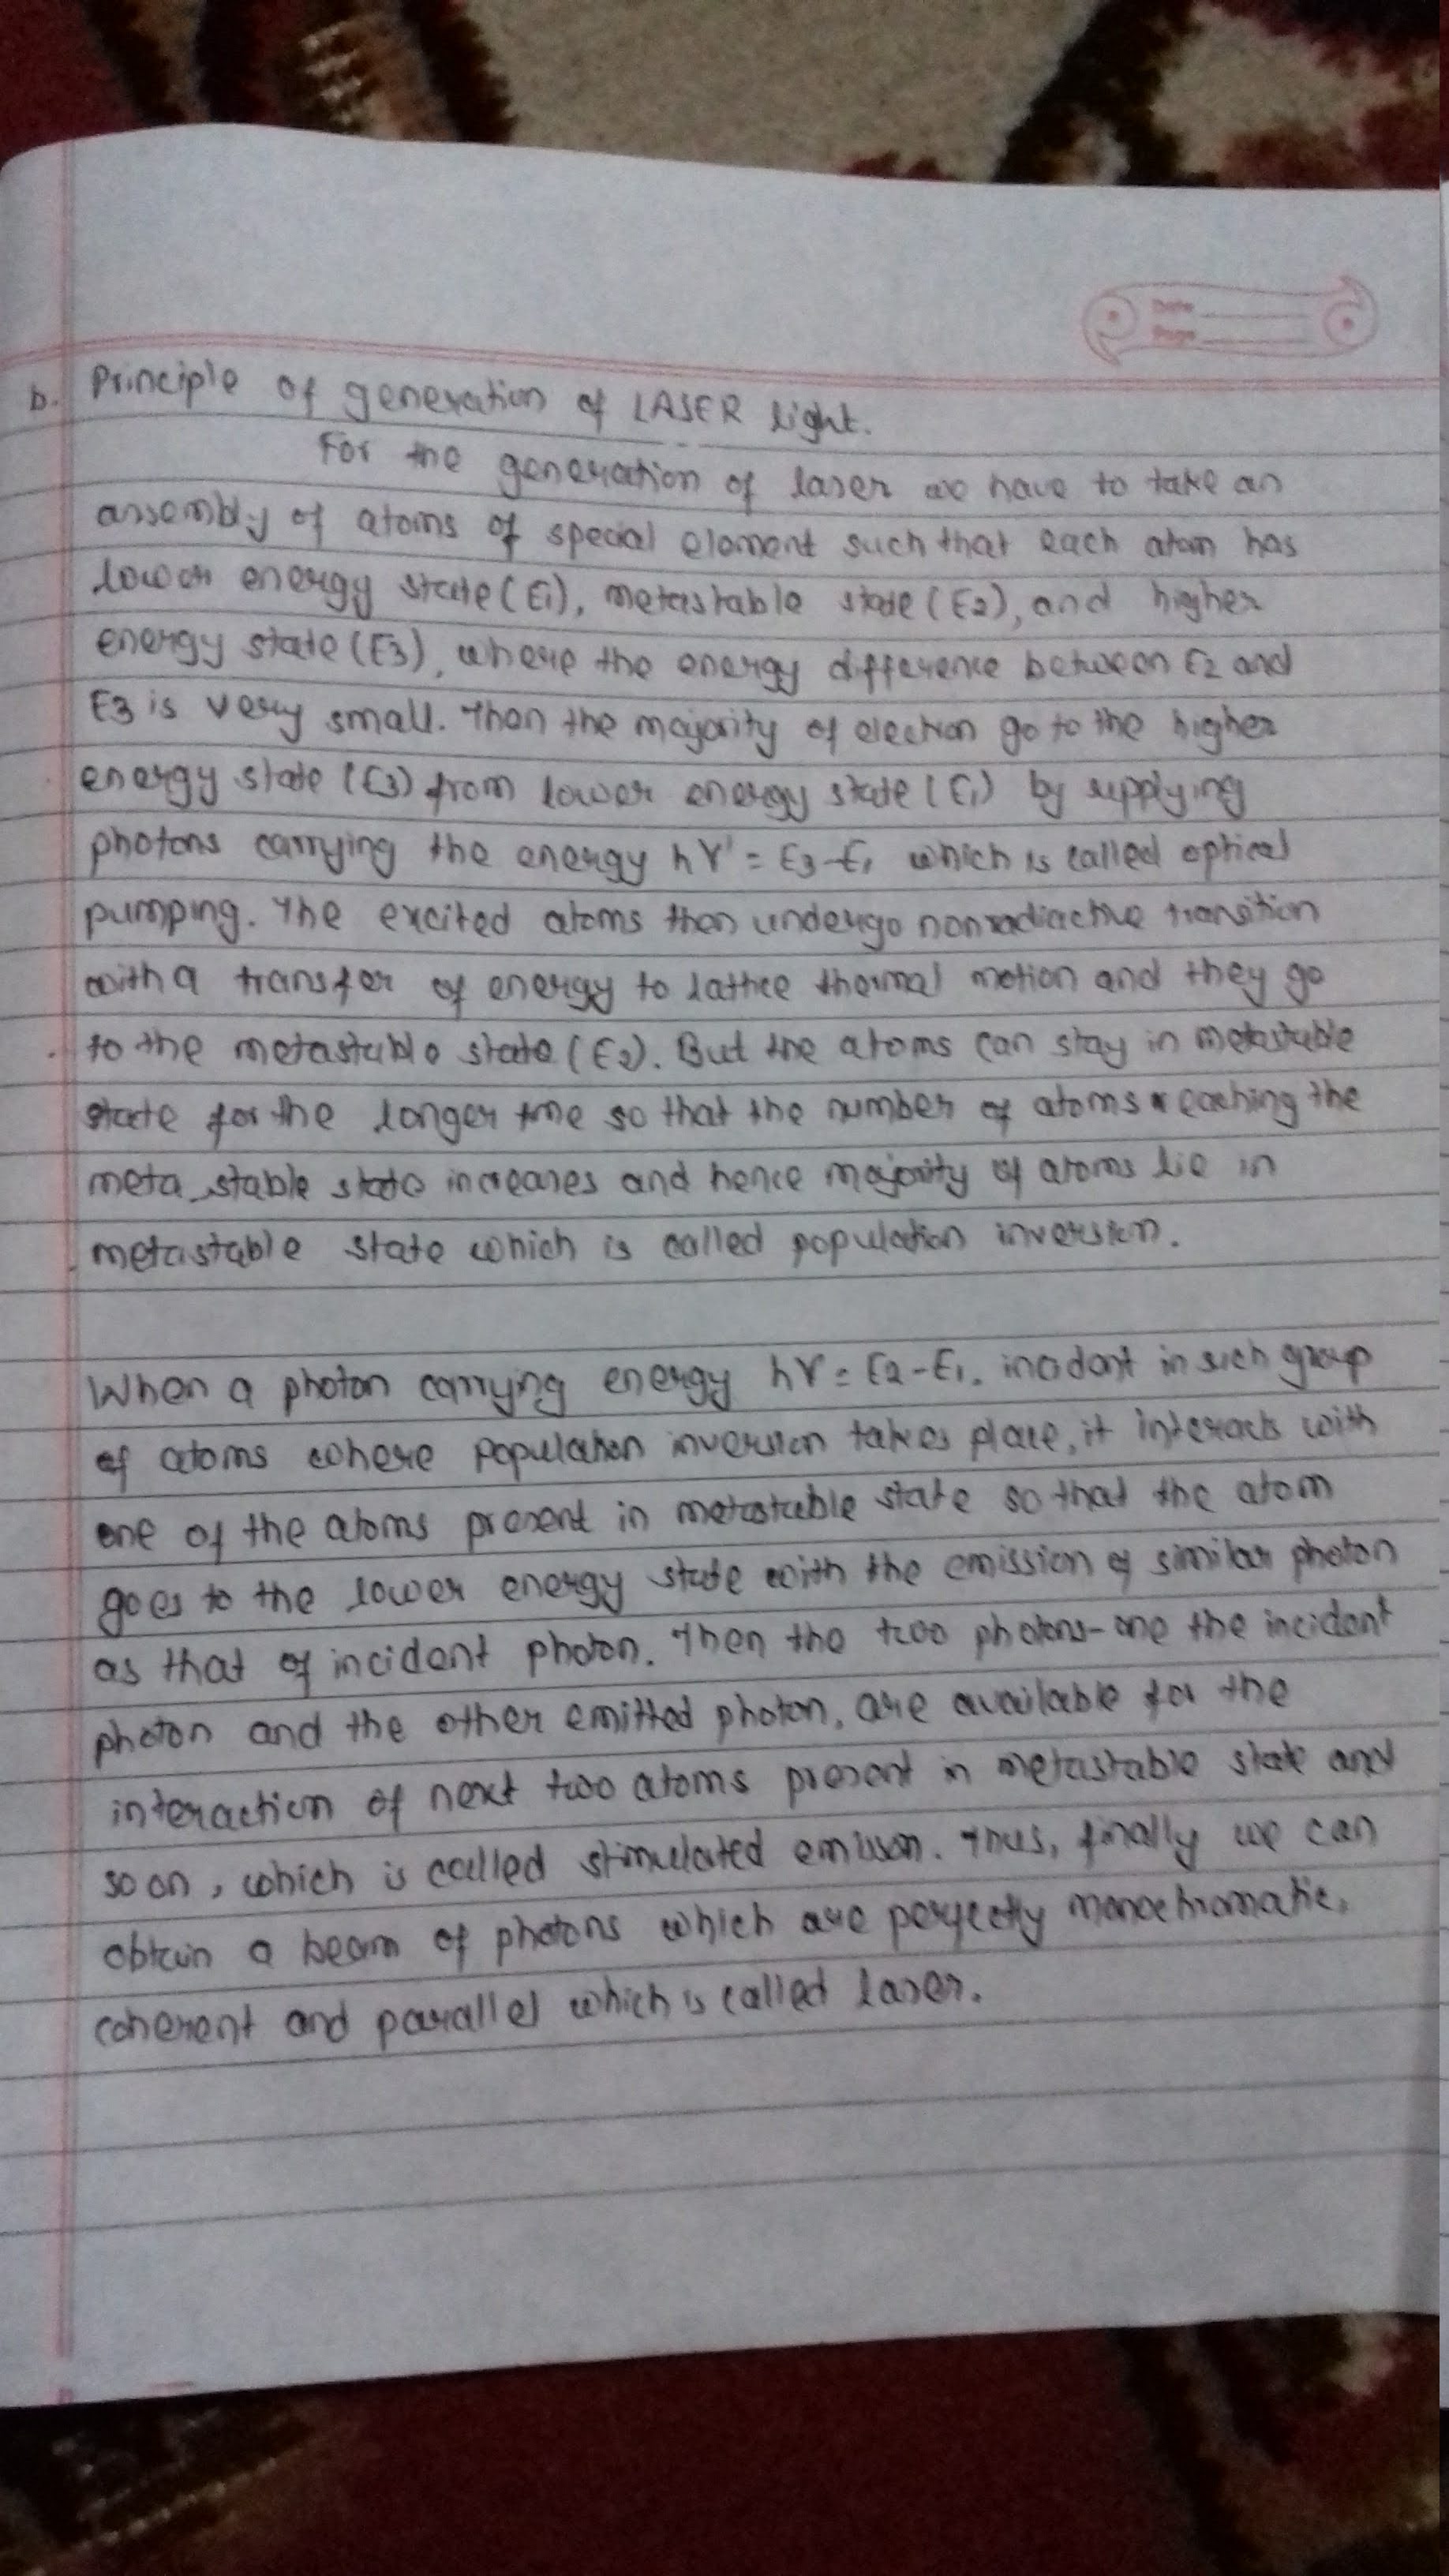 Date
Page
b. Principle of generation of LASER light.
For the generation of laser we have to take an
assembly of atoms of special element such that each atom has
lower energy state (E1), metastable state (E2), and higher
energy state (E3), where the energy difference between E2 and
E3 is very small. Then the majority of electron go to the higher
energy state (E3) from lower energy state (E1) by supplying
photons carrying the energy hν' = E3-E1 which is called optical
pumping. The excited atoms then undergo nonradiactive transition
with a transfer of energy to lattice thermal motion and they go
to the metastable state (E2). But the atoms can stay in metastable
state for the longer time so that the number of atoms reaching the
meta stable state increases and hence majority of atoms lie in
metastable state which is called population inversion.
When a photon carrying energy hν = E2-E1. incident in such group
of atoms where population inversion takes place, it interacts with
one of the atoms present in metastable state so that the atom
goes to the lower energy state with the emission of similar photon
as that of incident photon. Then the two photons-one the incident
photon and the other emitted photon, are available for the
interaction of next two atoms present in metastable state and
so on, which is called stimulated emission. Thus, finally we can
obtain a beam of photons which are perfectly monochromatic,
coherent and parallel which is called laser.